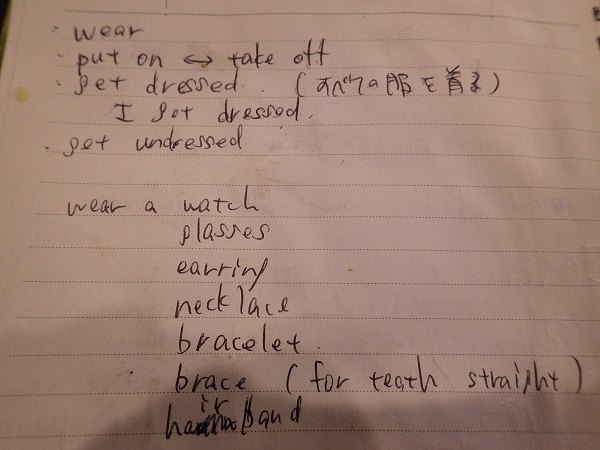 · wear
· put on ↔ take off
· get dressed. (すべての服を着る)
I got dressed.
· get undressed
wear a watch
glasses
earring
necklace
bracelet.
· brace (for teath straight)
hairband